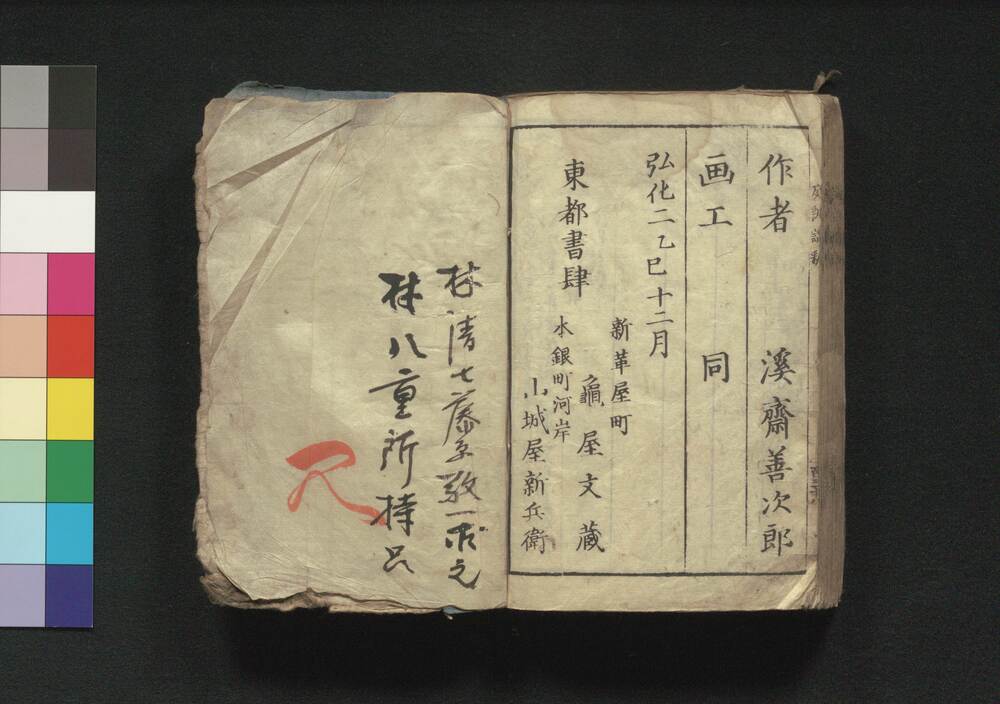 作者 溪齋善次郎
画工 同
弘化二乙巳十二月
東都書肆
新革屋町
龜屋文蔵
本銀町河岸
山城屋新兵衛
林清七藤原敬一求之
林八重所持品